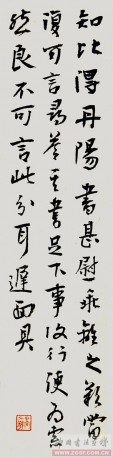 知比得丹陽書甚慰乖離之歎當
復可言尋答其書足下事復行便為索
然良不可言此分耳遲面具